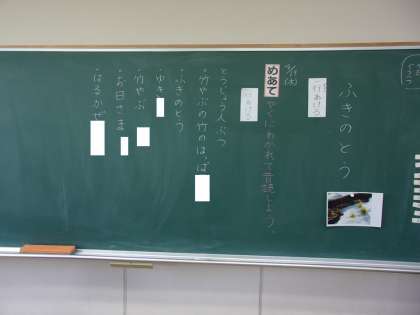 ふきのとう
一行あけろ
4/19(火)
めあて やくにわかれて音読しよう。
一行あけろ
とうじょう人ぶつ
・竹やぶの竹のはっぱ
・ふきのとう
・ゆき
・竹やぶ
・お日さま
・はるかぜ